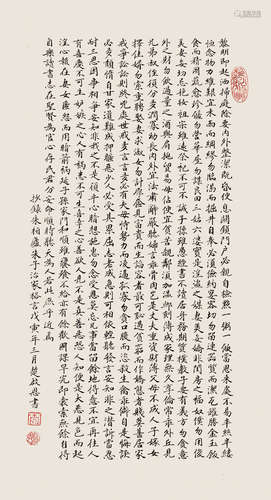 黎明即起洒掃庭除要內外整潔既昏便息關鎖門戶必親自檢點一粥一飯當思來處不易半絲半縷
恒念物力維艱宜未雨而綢繆勿臨渴而掘井自奉必須儉約宴客切勿留連器具質而潔瓦缶勝金玉飲
食精而精園蔬愈珍饈勿營華屋勿謀良田三姑六婆實淫盜之媒婢美妾嬌非閨房之福奴僕勿用俊
美妻妾切忌艷妝祖宗雖遠祭祀不可不誠子孫雖愚經書不可不讀居身務期質樸教子要有義方勿貪意
外之財勿飲過量之酒與肩挑貿易毋佔便宜見貧苦親鄰須加溫卹刻薄成家理無久享倫常乖舛立見
消亡兄弟叔侄須分多潤寡長幼內外宜法肅辭嚴聽婦言乖骨肉豈是丈夫重資財薄父母不成人子嫁女
擇佳婿毋索重聘娶媳求淑女勿計厚奩見富貴而生諂容者最可恥遇貧窮而作驕態者賤莫甚居家
戒爭訟訟則終凶處世戒多言言多必失毋恃勢力而凌逼孤寡勿貪口腹而恣殺生禽乖僻自是悔誤
必多頹惰自甘家道難成狎暱惡少久必受其累屈志老成急則可相依輕聽發言安知非人之譖訴當忍
耐三思因事相爭安知非我之不是須平心暗想施惠勿念受恩莫忘凡事當留餘地得意不宜再往人
有喜慶不可生妒嫉心人有禍患不可生喜幸心善欲人見不是真善惡恐人知便是大惡見色而起
淫心報在妻女匿怨而用暗箭禍延子孫家門和順雖饔飧不繼亦有餘歡國課早完即囊橐無餘自得
至樂讀書志在聖賢為官心存君民守分安命順時聽天為人若此庶乎近焉
抄錄朱柏廬朱子治家格言戊寅年三月楚啟恩書